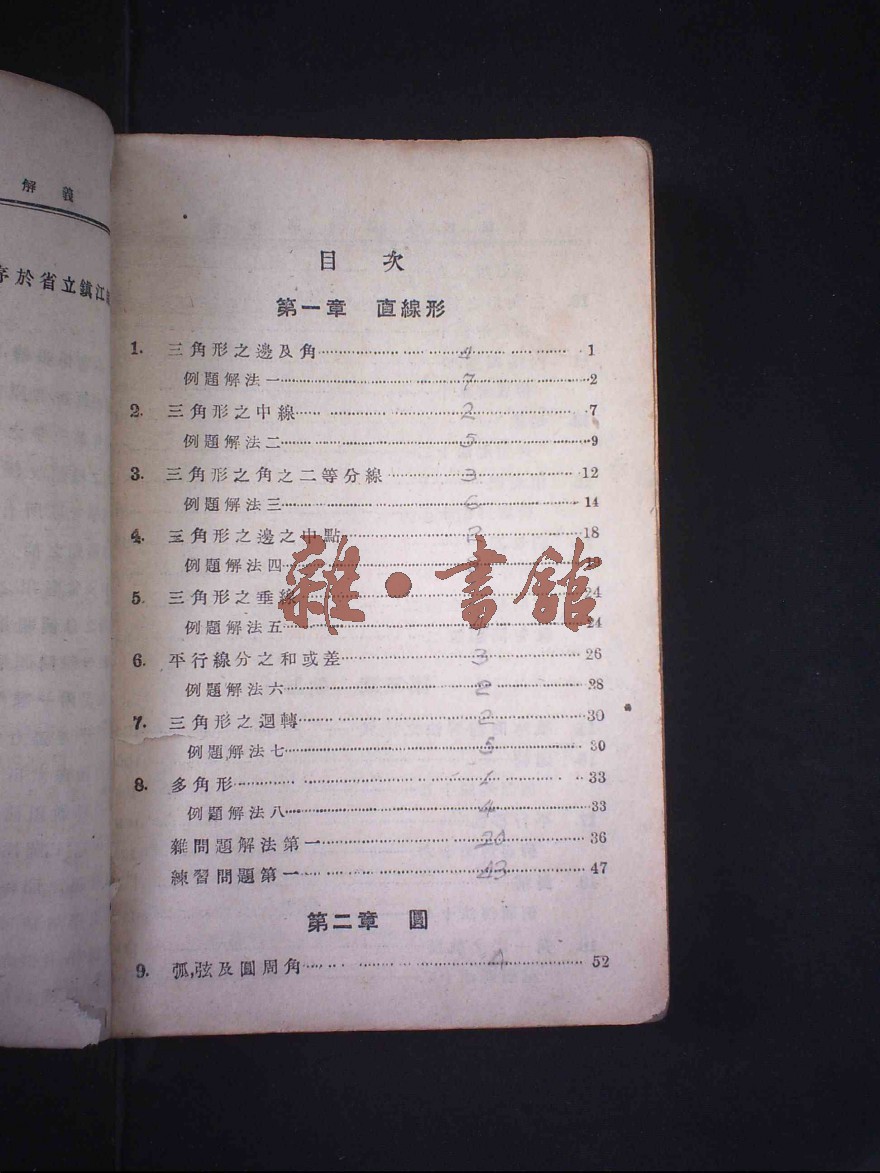 解義
序於省立鎮江
目次
第一章 直線形
1. 三角形之邊及角 4 1
例題解法一 7 2
2. 三角形之中線 2 7
例題解法二 5 9
3. 三角形之角之二等分線 3 12
例題解法三 6 14
4. 三角形之邊之中點 2 18
例題解法四
5. 三角形之垂線 24
例題解法五 24
6. 平行線分之和或差 3 26
例題解法六 2 28
7. 三角形之迴轉 2 30
例題解法七 5 30
8. 多角形 1 33
例題解法八 4 33
雜問題解法第一 20 36
練習問題第一 43 47
第二章 圓
9. 弧,弦及圓周角 4 52
雜·書館